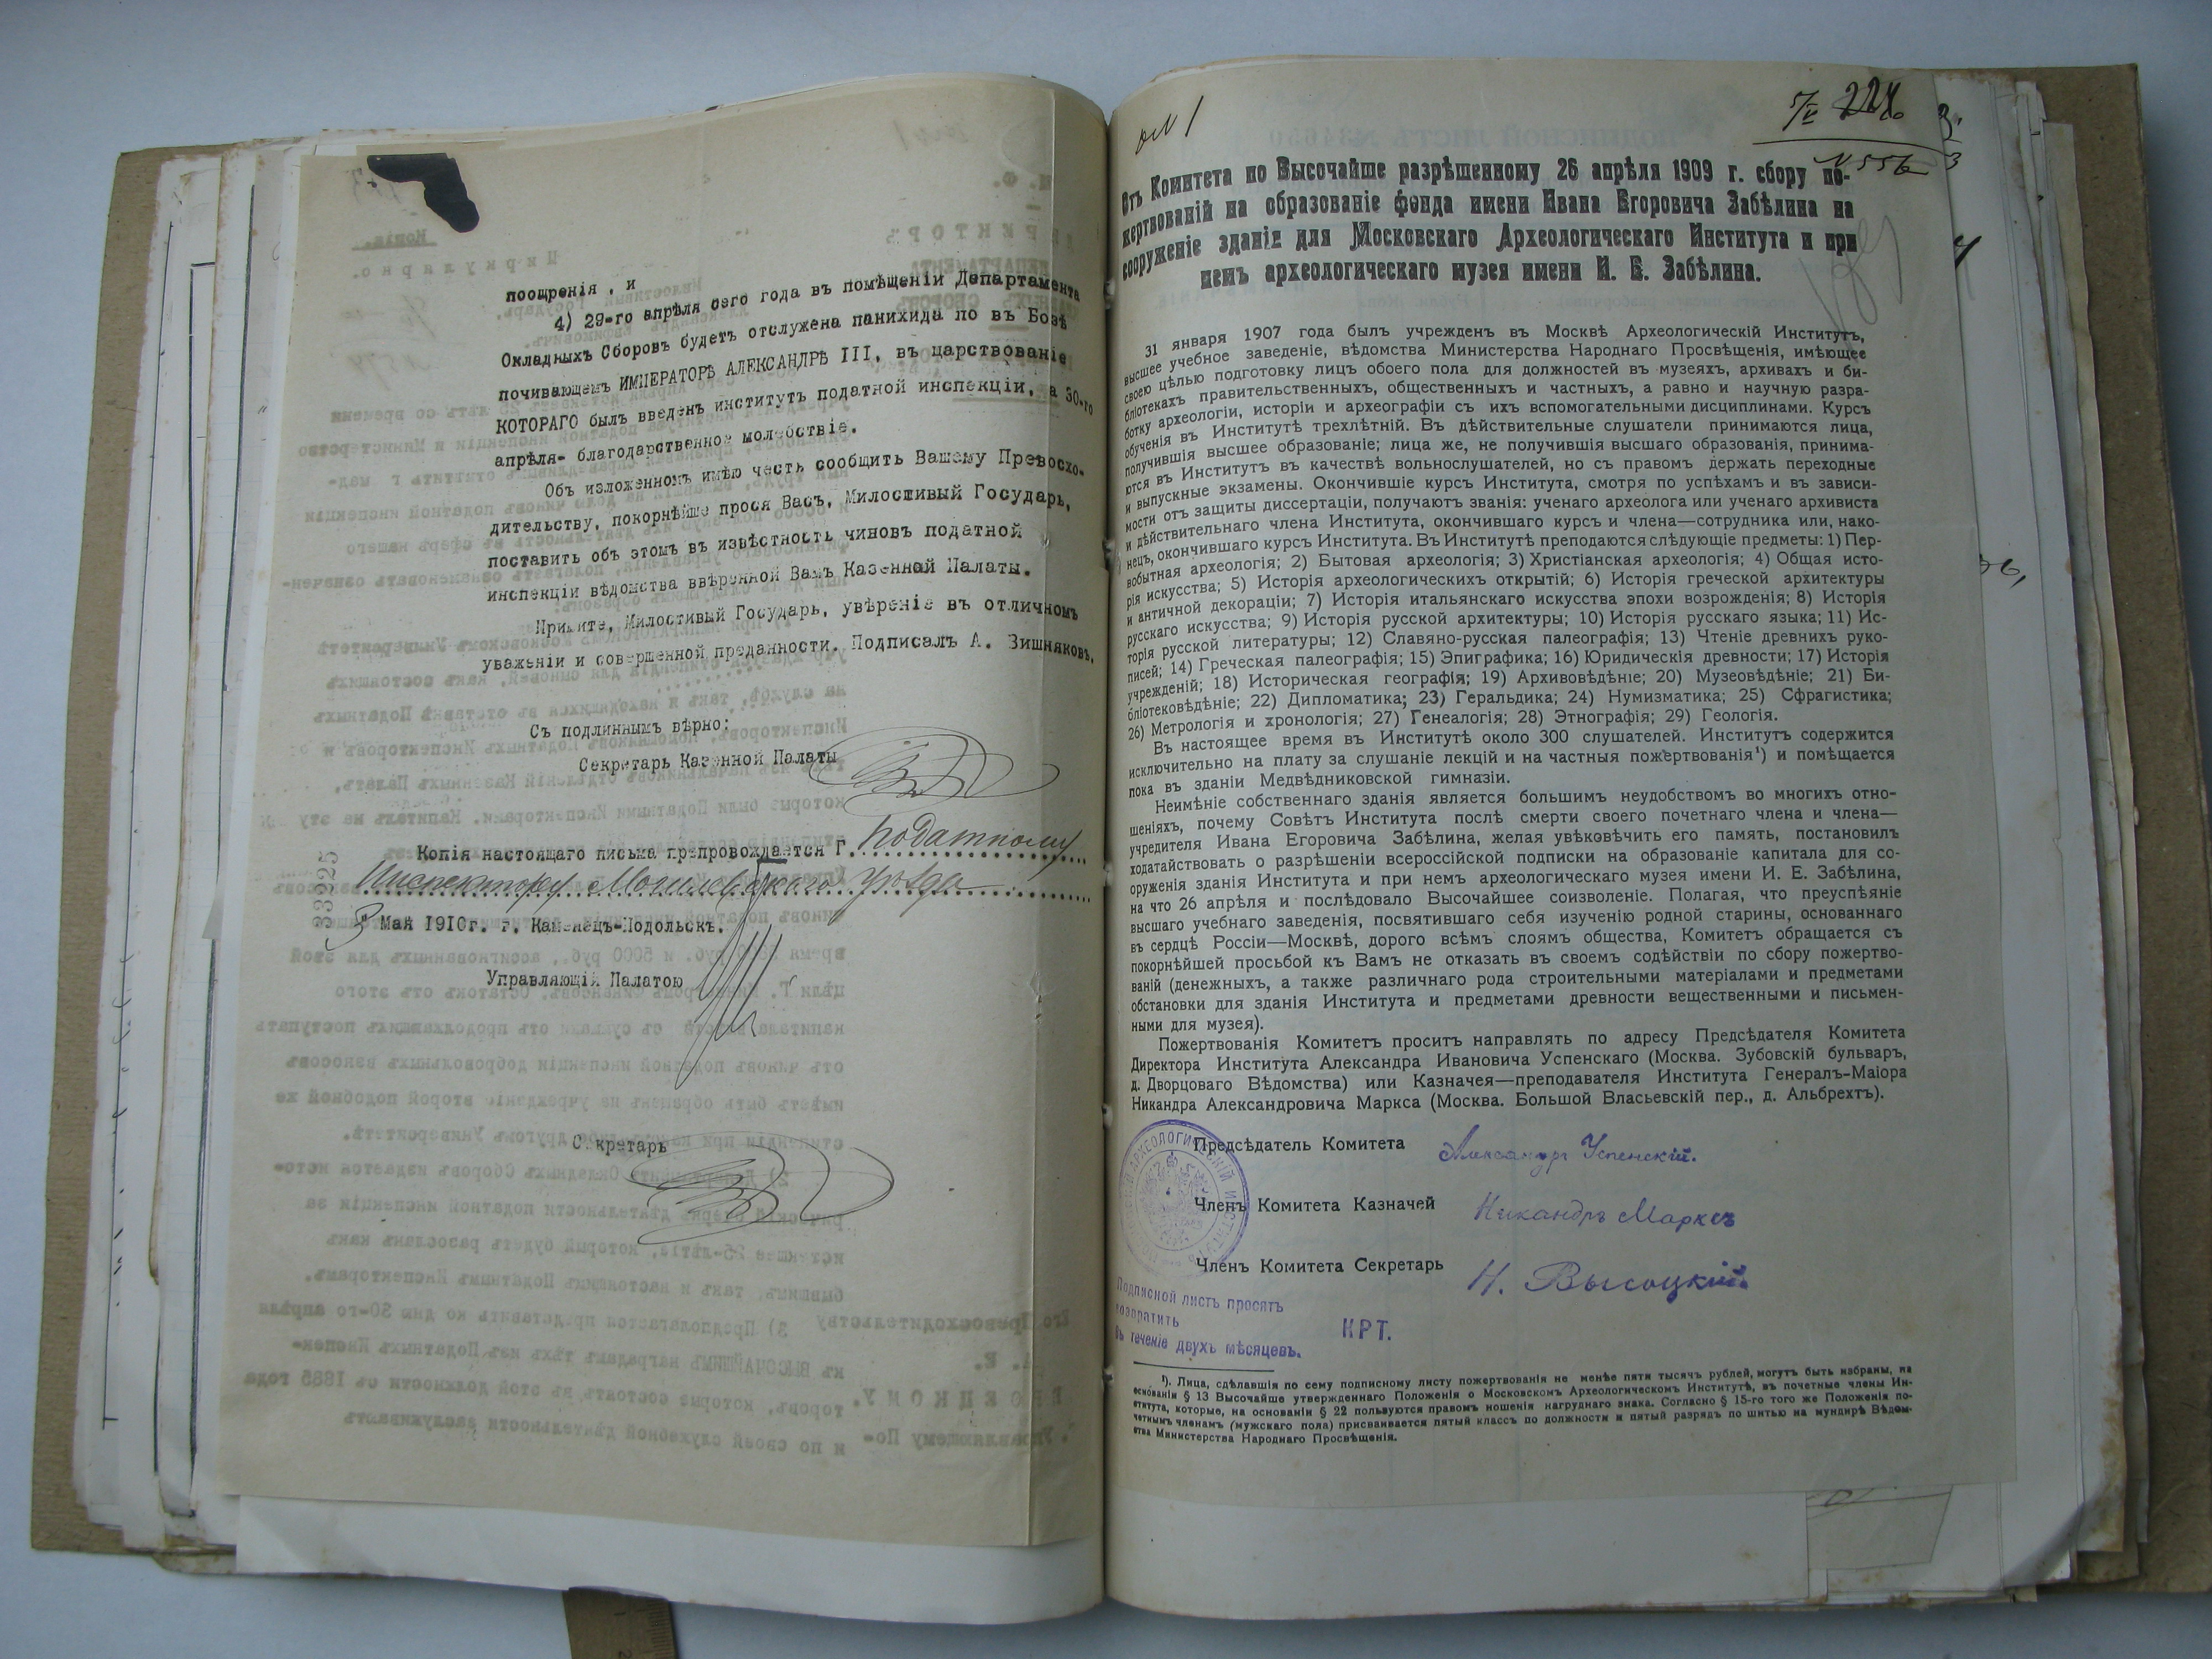 поощренія , и
4) 29-го апрѣля сего года въ помѣщеніи Департамента
Окладныхъ Сборовъ будетъ отслужена панихида по въ Бозѣ
почивающемъ ИМПЕРАТОРѢ АЛЕКСАНДРѢ III, въ царствованіе
КОТОРАГО былъ введенъ институтъ податной инспекціи, а 30-го
апрѣля- благодарственное молебствіе.
Объ изложенномъ имѣю честь сообщить Вашему Превосхо-
дительству, покорнѣйше прося Васъ, Милостивый Государь,
поставить объ этомъ въ извѣстность чиновъ податной
инспекціи вѣдомства ввѣренной Вамъ Казенной Палаты.
Примите, Милостивый Государь, увѣреніе въ отличномъ
уваженіи и совершенной преданности. Подписалъ А. Вишняковъ.
Съ подлиннымъ вѣрно:
Секретарь Казенной Палаты
Копія настоящаго письма препровождается Г. Податному
Инспектору Могилевскаго уѣзда
33225
3 Мая 1910г. г. Каменецъ-Подольскъ.
Управляющій Палатою
Секретарь
№ 556
Отъ Комитета по Высочайше разрѣшенному 26 апрѣля 1909 г. сбору по-
жертвованій на образованіе фонда имени Ивана Егоровича Забѣлина на
сооруженіе зданія для Московскаго Археологическаго Института и при
немъ археологическаго музея имени И. Е. Забѣлина.
31 января 1907 года былъ учрежденъ въ Москвѣ Археологическій Институтъ,
высшее учебное заведеніе, вѣдомства Министерства Народнаго Просвѣщенія, имѣющее
своею цѣлью подготовку лицъ обоего пола для должностей въ музеяхъ, архивахъ и би-
бліотекахъ правительственныхъ, общественныхъ и частныхъ, а равно и научную разра-
ботку археологіи, исторіи и археографіи съ ихъ вспомогательными дисциплинами. Курсъ
обученія въ Институтѣ трехлѣтній. Въ дѣйствительные слушатели принимаются лица,
получившія высшее образованіе; лица же, не получившія высшаго образованія, принима-
ются въ Институтъ въ качествѣ вольнослушателей, но съ правомъ держать переходные
и выпускные экзамены. Окончившіе курсъ Института, смотря по успѣхамъ и въ зависи-
мости отъ защиты диссертаціи, получаютъ званія: ученаго археолога или ученаго архивиста
и дѣйствительнаго члена Института, окончившаго курсъ и члена—сотрудника или, нако-
нецъ, окончившаго курсъ Института. Въ Институтѣ преподаются слѣдующіе предметы: 1) Пер-
вобытная археологія; 2) Бытовая археологія; 3) Христіанская археологія; 4) Общая исто-
рія искусства; 5) Исторія археологическихъ открытій; 6) Исторія греческой архитектуры
и античной декораціи; 7) Исторія итальянскаго искусства эпохи возрожденія; 8) Исторія
русскаго искусства; 9) Исторія русской архитектуры; 10) Исторія русскаго языка; 11) Ис-
торія русской литературы; 12) Славяно-русская палеографія; 13) Чтеніе древнихъ руко-
писей; 14) Греческая палеографія; 15) Эпиграфика; 16) Юридическія древности; 17) Исторія
учрежденій; 18) Историческая географія; 19) Архивовѣдѣніе; 20) Музеовѣдѣніе; 21) Би-
бліотековѣдѣніе; 22) Дипломатика; 23) Геральдика; 24) Нумизматика; 25) Сфрагистика;
26) Метрологія и хронологія; 27) Генеалогія; 28) Этнографія; 29) Геологія.
Въ настоящее время въ Институтѣ около 300 слушателей. Институтъ содержится
исключительно на плату за слушаніе лекцій и на частныя пожертвованія¹) и помѣщается
пока въ зданіи Медвѣдниковской гимназіи.
Неимѣніе собственнаго зданія является большимъ неудобствомъ во многихъ отно-
шеніяхъ, почему Совѣтъ Института послѣ смерти своего почетнаго члена и члена—
учредителя Ивана Егоровича Забѣлина, желая увѣковѣчить его память, постановилъ
ходатайствовать о разрѣшеніи всероссійской подписки на образованіе капитала для со-
оруженія зданія Института и при немъ археологическаго музея имени И. Е. Забѣлина,
на что 26 апрѣля и послѣдовало Высочайшее соизволеніе. Полагая, что преуспѣяніе
высшаго учебнаго заведенія, посвятившаго себя изученію родной старины, основаннаго
въ сердцѣ Россіи—Москвѣ, дорого всѣмъ слоямъ общества, Комитетъ обращается съ
покорнѣйшей просьбой къ Вамъ не отказать въ своемъ содѣйствіи по сбору пожертво-
ваній (денежныхъ, а также различнаго рода строительными матеріалами и предметами
обстановки для зданія Института и предметами древности вещественными и письмен-
ными для музея).
Пожертвованія Комитетъ проситъ направлять по адресу Предсѣдателя Комитета
Директора Института Александра Ивановича Успенскаго (Москва. Зубовскій бульваръ,
д. Дворцоваго Вѣдомства) или Казначея—преподавателя Института Генералъ-Маіора
Никандра Александровича Маркса (Москва. Большой Власьевскій пер., д. Альбрехтъ).
Предсѣдатель Комитета Александръ Успенскій.
Членъ Комитета Казначей Никандръ Марксъ
Членъ Комитета Секретарь Н. Высоцкій
АРХЕОЛОГИЧЕСКІЙ ИНСТИТУТЪ
Подписной листъ просятъ
возвратить
въ теченіе двухъ мѣсяцевъ.
КРТ.
¹). Лица, сдѣлавшія по сему подписному листу пожертвованія не менѣе пяти тысячъ рублей, могутъ быть избраны, на
основаніи § 13 Высочайше утвержденнаго Положенія о Московскомъ Археологическомъ Институтѣ, въ почетные члены Ин-
ститута, которые, на основаніи § 22 пользуются правомъ ношенія нагруднаго знака. Согласно § 15-го того же Положенія по-
четнымъ членамъ (мужского пола) присваивается пятый классъ по должности и пятый разрядъ по шитью на мундирѣ Вѣдом-
ства Министерства Народнаго Просвѣщенія.